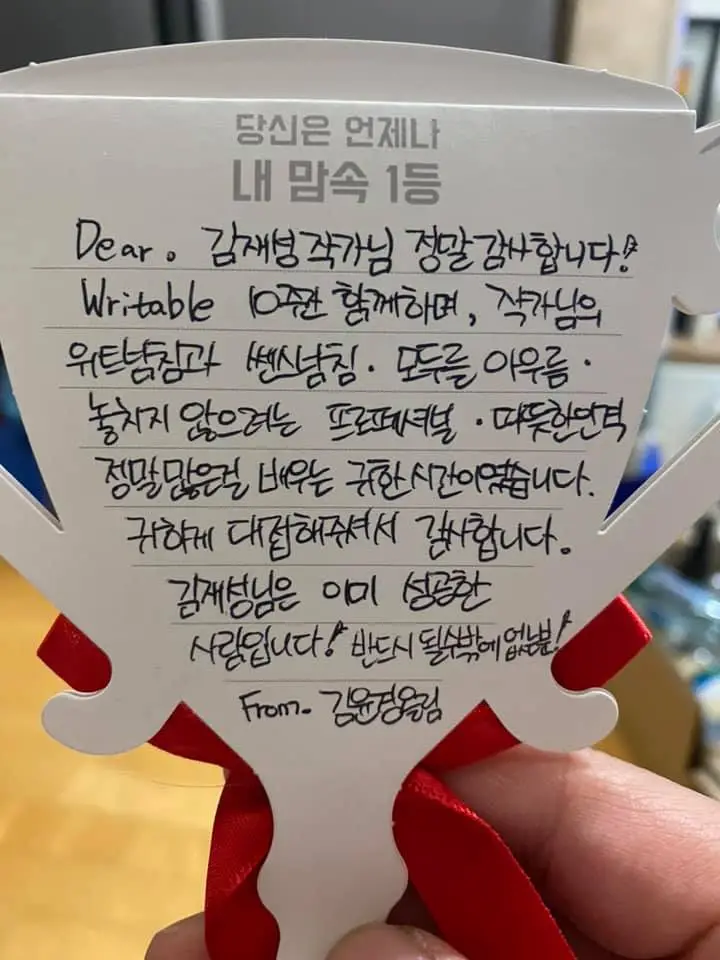 당신은 언제나
내 맘속 1등
Dear. 김재성작가님 정말 감사합니다!
Writable 10주간 함께하며, 작가님의
위트남침과 쎈스남침. 모두를 아우름.
놓치지 않으려는 프로페셔널. 따뜻한인격
정말많은걸 배우는 귀한시간이였습니다.
귀하게 대접해주셔서 감사합니다.
김재성님은 이미 성공한
사람입니다! 반드시 될수밖에없는분!
From. 김윤경올림